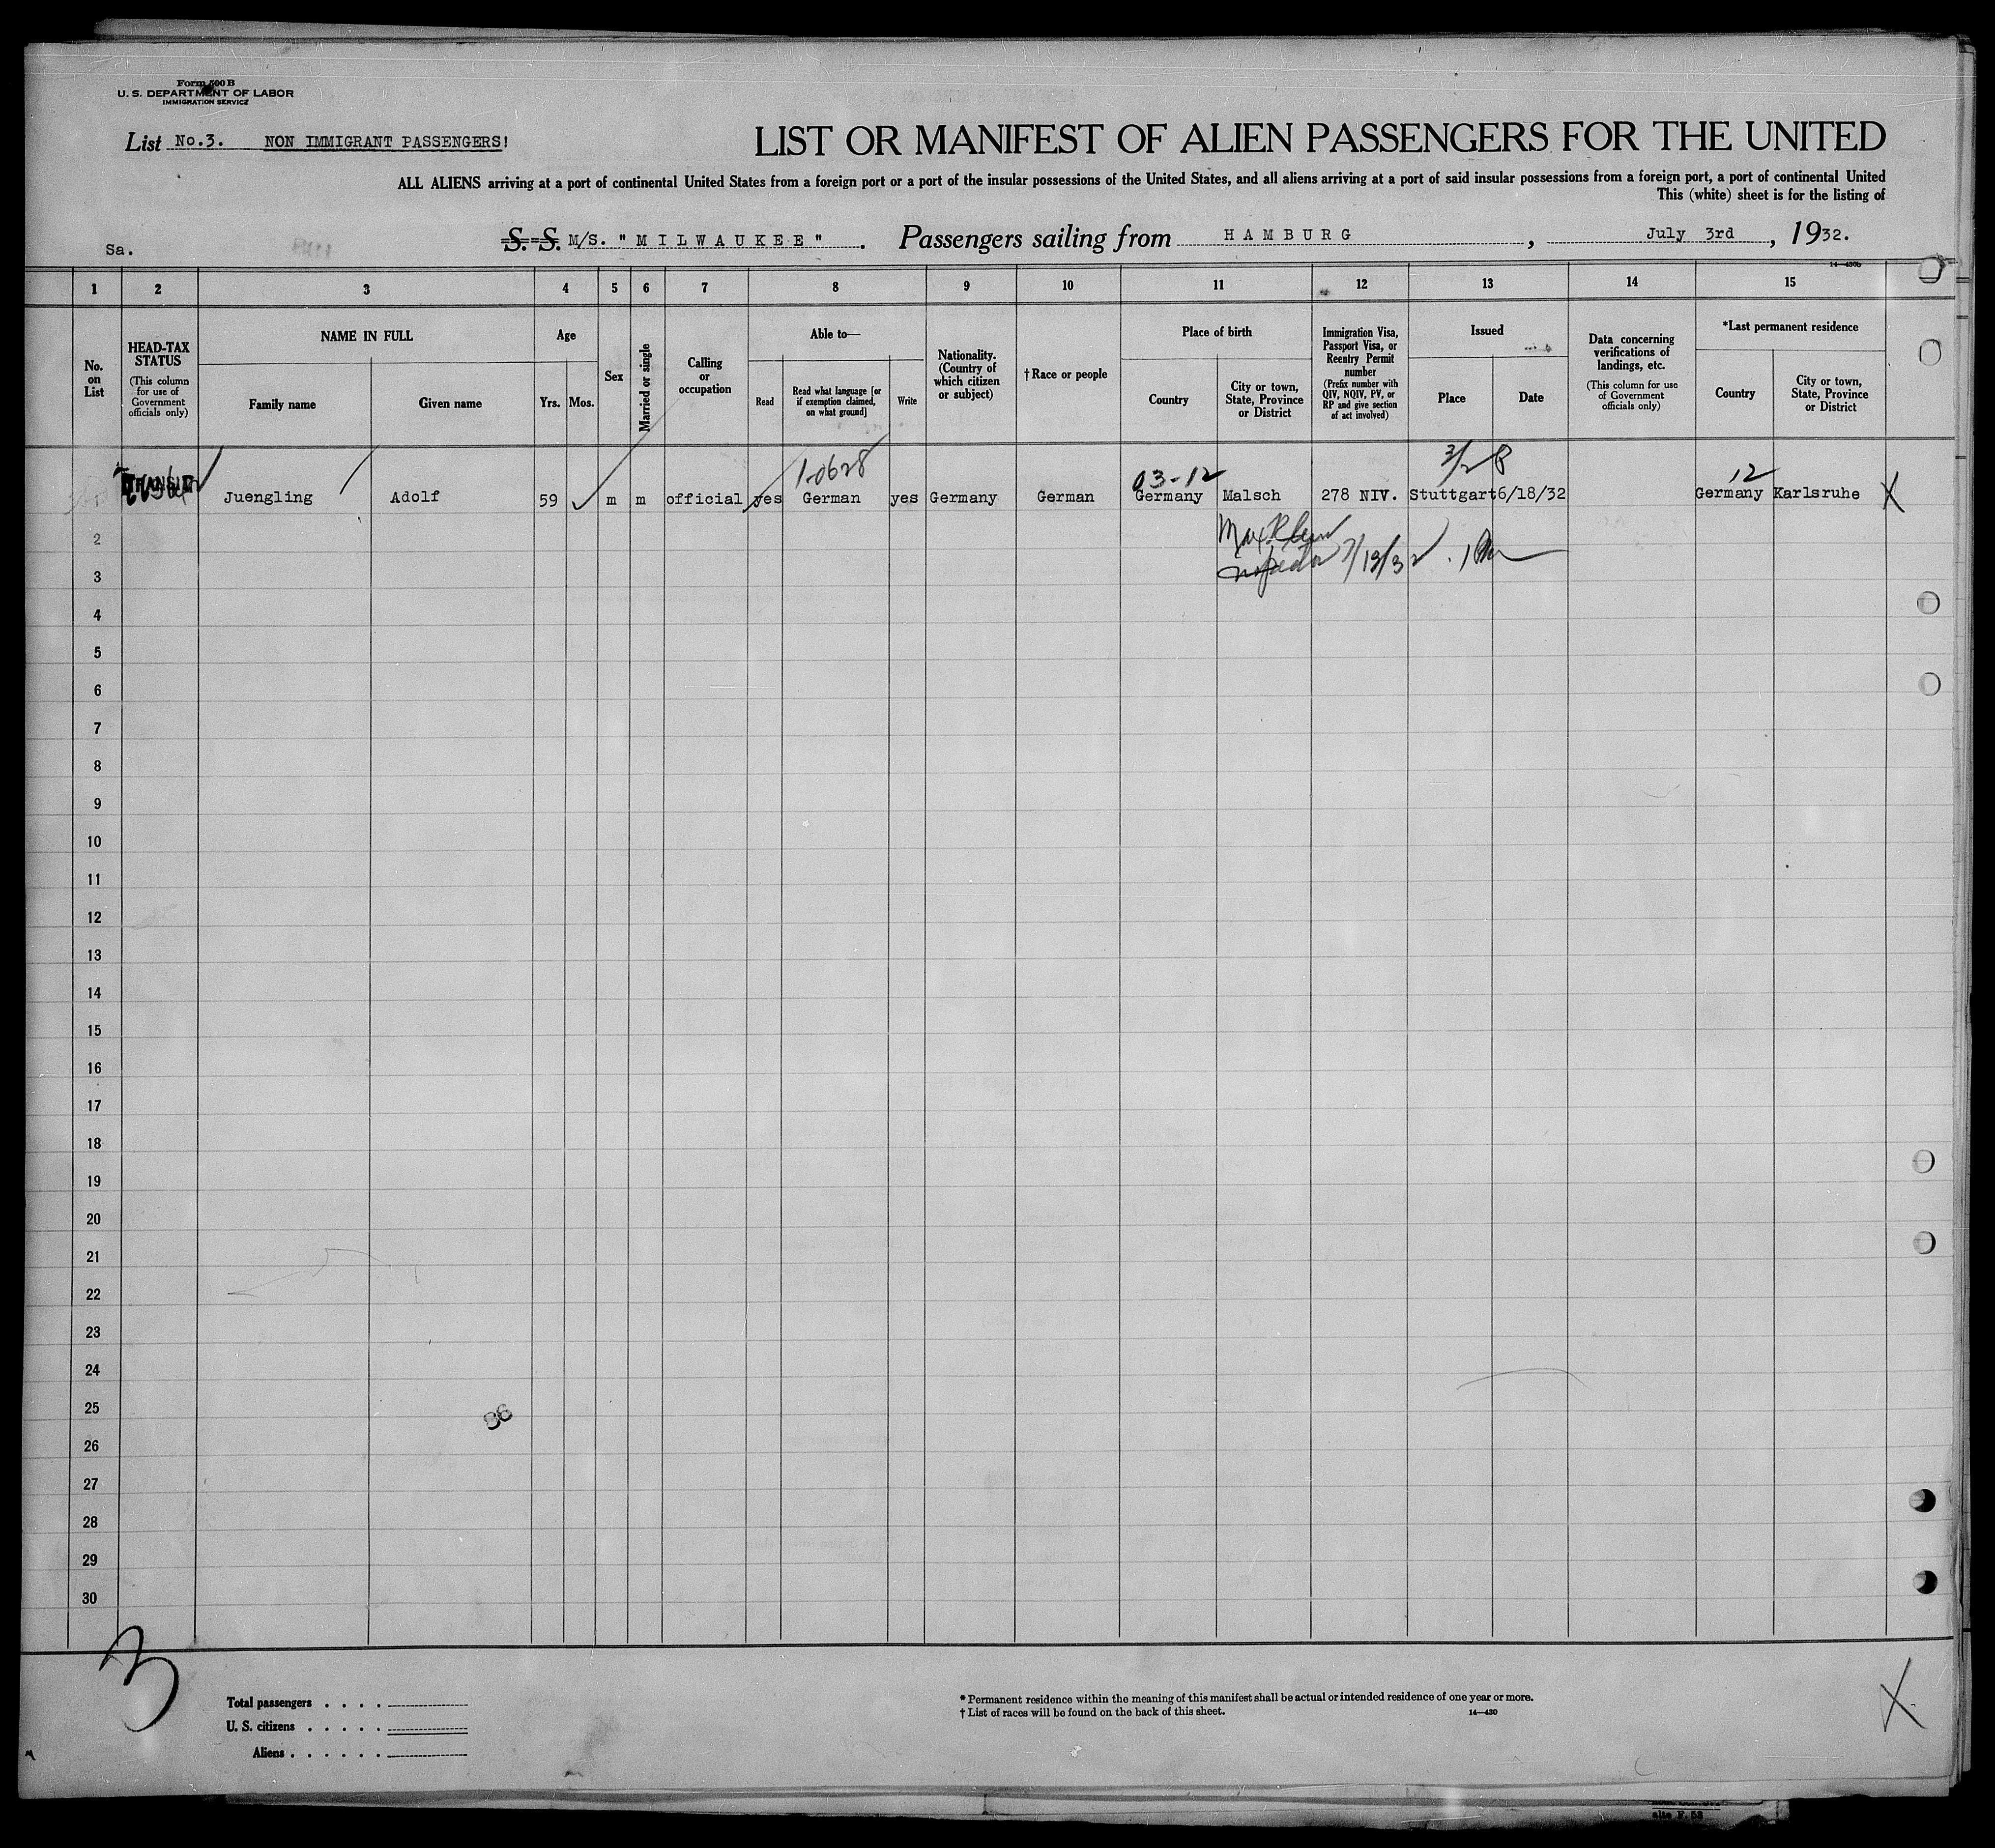 Form 500 B
U. S. DEPARTMENT OF LABOR
IMMIGRATION SERVICE
List No.3. NON IMMIGRANT PASSENGERS!
LIST OR MANIFEST OF ALIEN PASSENGERS FOR THE UNITED
ALL ALIENS arriving at a port of continental United States from a foreign port or a port of the insular possessions of the United States, and all aliens arriving at a port of said insular possessions from a foreign port, a port of continental United
This (white) sheet is for the listing of
Sa.
S. S. M/S. "MILWAUKEE". Passengers sailing from HAMBURG, July 3rd, 1932.
14—430b
1 2 3 4 5 6 7 8 9 10 11 12 13 14 15
No. on List
HEAD-TAX STATUS
(This column for use of Government officials only)
NAME IN FULL
Family name
Given name
Age
Yrs.
Mos.
Sex
Married or single
Calling or occupation
Able to—
Read
Read what language [or if exemption claimed, on what ground]
Write
Nationality. (Country of which citizen or subject)
†Race or people
Place of birth
Country
City or town, State, Province or District
Immigration Visa, Passport Visa, or Reentry Permit number
(Prefix number with QIV, NQIV, PV, or RP and give section of act involved)
Issued
Place
Date
Data concerning verifications of landings, etc.
(This column for use of Government officials only)
*Last permanent residence
Country
City or town, State, Province or District
1-0628 03-12 3/28 12
TRANSIT Juengling Adolf 59 m m official yes German yes Germany German Germany Malsch 278 NIV. Stuttgart 6/18/32 Germany Karlsruhe X
2 Max
3 7/13/32
4
5
6
7
8
9
10
11
12
13
14
15
16
17
18
19
20
21
22
23
24
25
86
26
27
28
29
30
3
Total passengers . . . .
U. S. citizens . . . . .
Aliens . . . . . .
* Permanent residence within the meaning of this manifest shall be actual or intended residence of one year or more.
† List of races will be found on the back of this sheet.
14—430
X